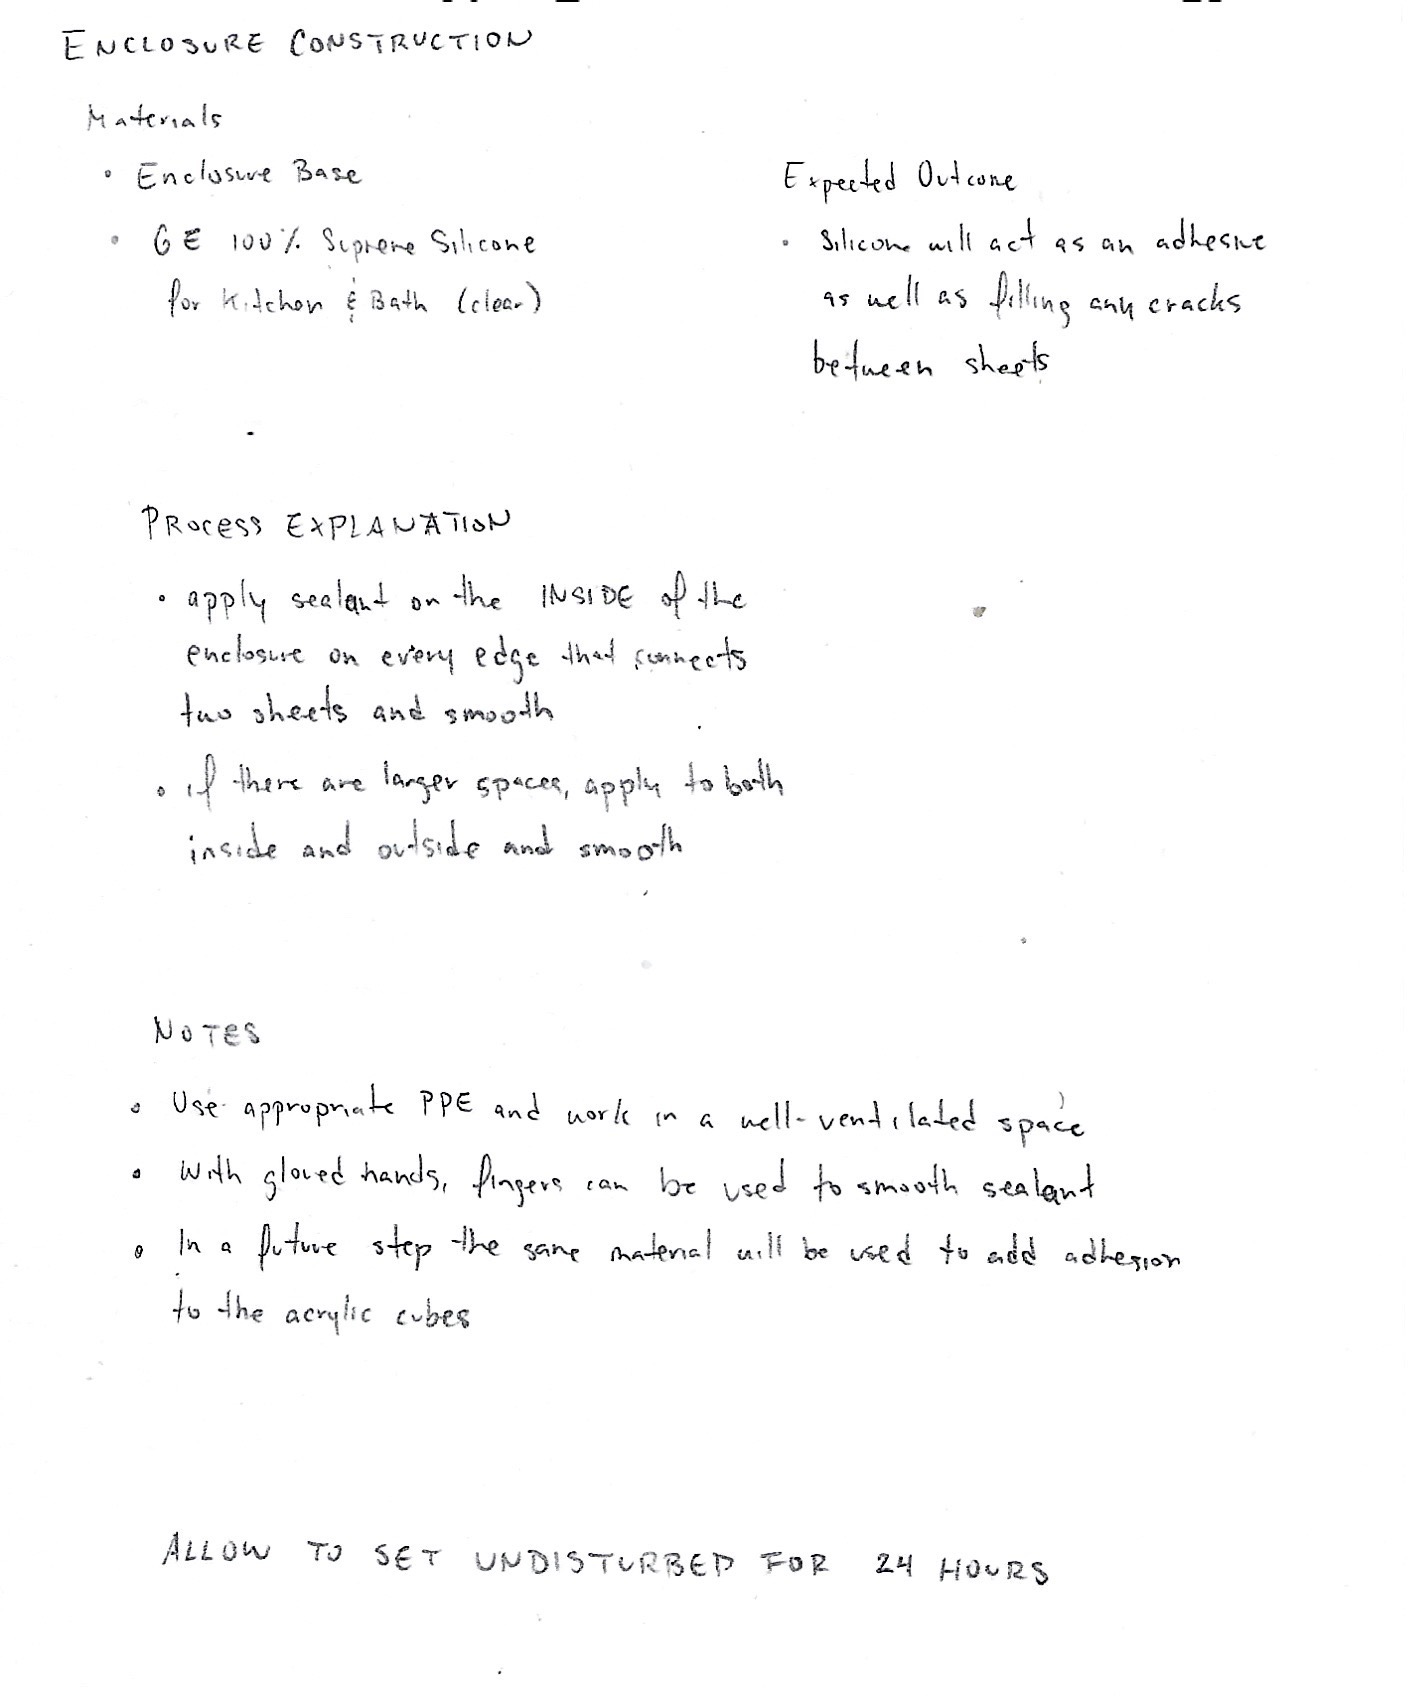 ENCLOSURE CONSTRUCTION
Materials
• Enclosure Base
• GE 100% Supreme Silicone
for Kitchen & Bath (clear)
Expected Outcome
• Silicone will act as an adhesive
as well as filling any cracks
between sheets
PROCESS EXPLANATION
• apply sealant on the INSIDE of the
enclosure on every edge that connects
two sheets and smooth
• if there are larger spaces, apply to both
inside and outside and smooth
NOTES
• Use appropriate PPE and work in a well-ventilated space
• With gloved hands, fingers can be used to smooth sealant
• In a future step the same material will be used to add adhesion
to the acrylic cubes
ALLOW TO SET UNDISTURBED FOR 24 HOURS